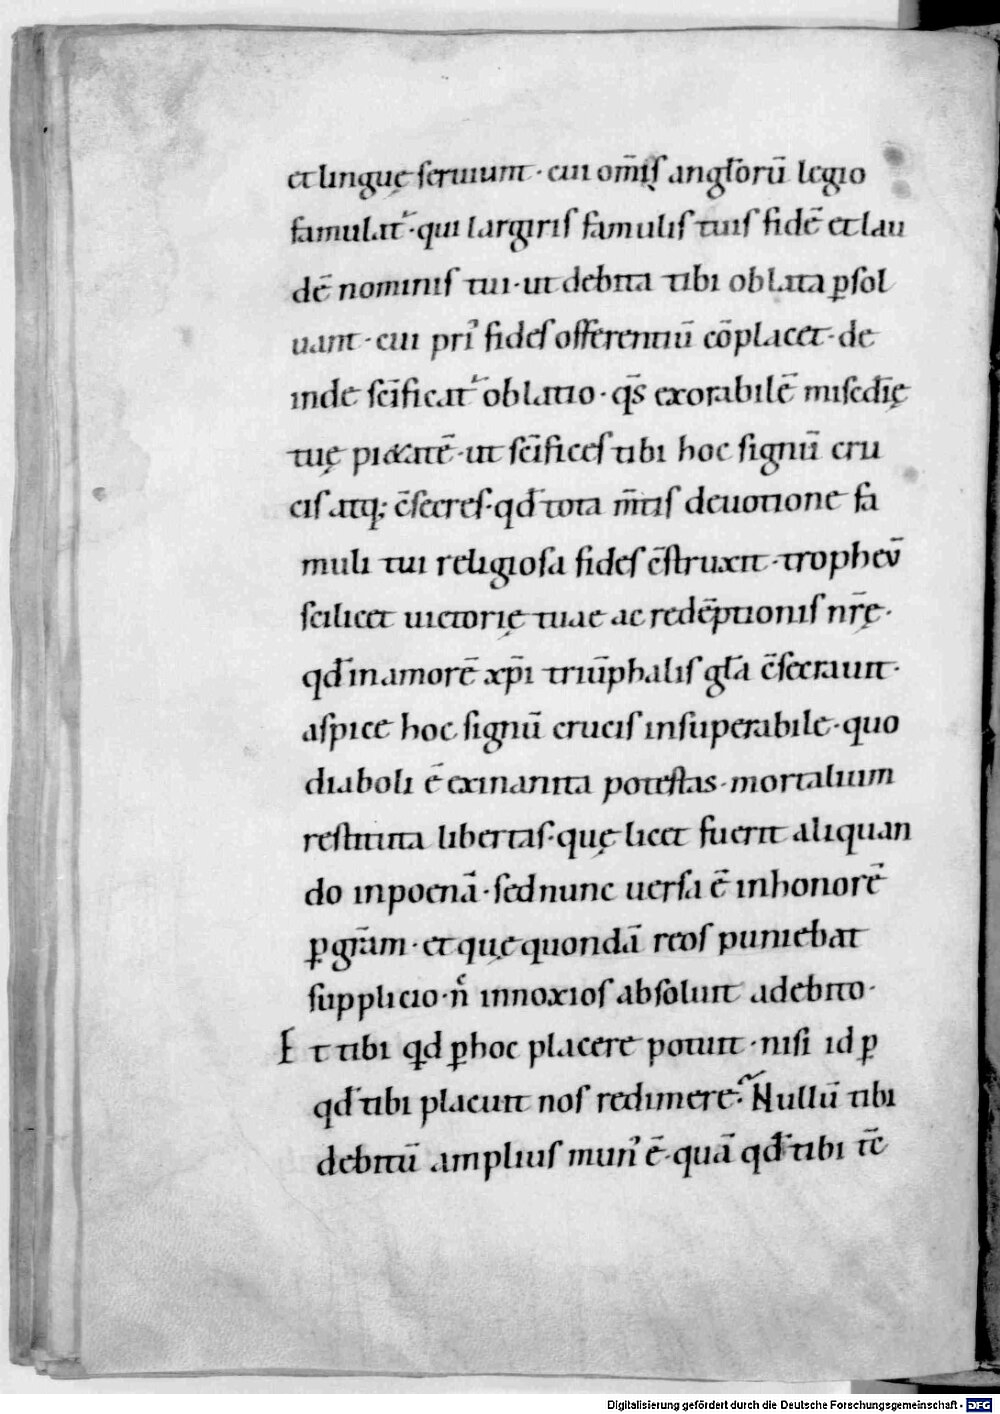 et linguę seruiunt · cui om̄is angłorū legio
famulat᷑ · qui largiris famulis tuis fidē et lau
dē nominis tui · ut debita tibi oblata ꝑsol
uant · cui pri᷒ fides offerentiū cōplacet · de
inde sc̄ificat᷑ oblatio · q̄s exorabilē miscďię
tuę pietatē · ut sc̄ifices tibi hoc signū cru
cis atq; c̄secres · qď tota m̄tis deuotione fa
muli tui religiosa fides c̄struxit · tropheū
scilicet uictorię tuae ac redēptionis nr̄ę ·
qď in amorē xp̄i triūphalis gła c̄secrauit ·
aspice hoc signū crucis insuperabile · quo
diaboli ē exinanita potestas · mortalium
restituta libertas · quę licet fuerit aliquan
do in poenā · sed nunc uersa ē in honorē
ꝑ grām · et quę quondā reos puniebat
supplicio · n̄c innoxios absoluit a debito ·
Et tibi qd ꝑ hoc placere potuit · nisi id ꝑ
qď tibi placuit nos redimere? Nullū tibi
debitū amplius mun᷒ ē · quā qď tibi tc̄
Digitalisierung gefördert durch die Deutsche Forschungsgemeinschaft - DFG